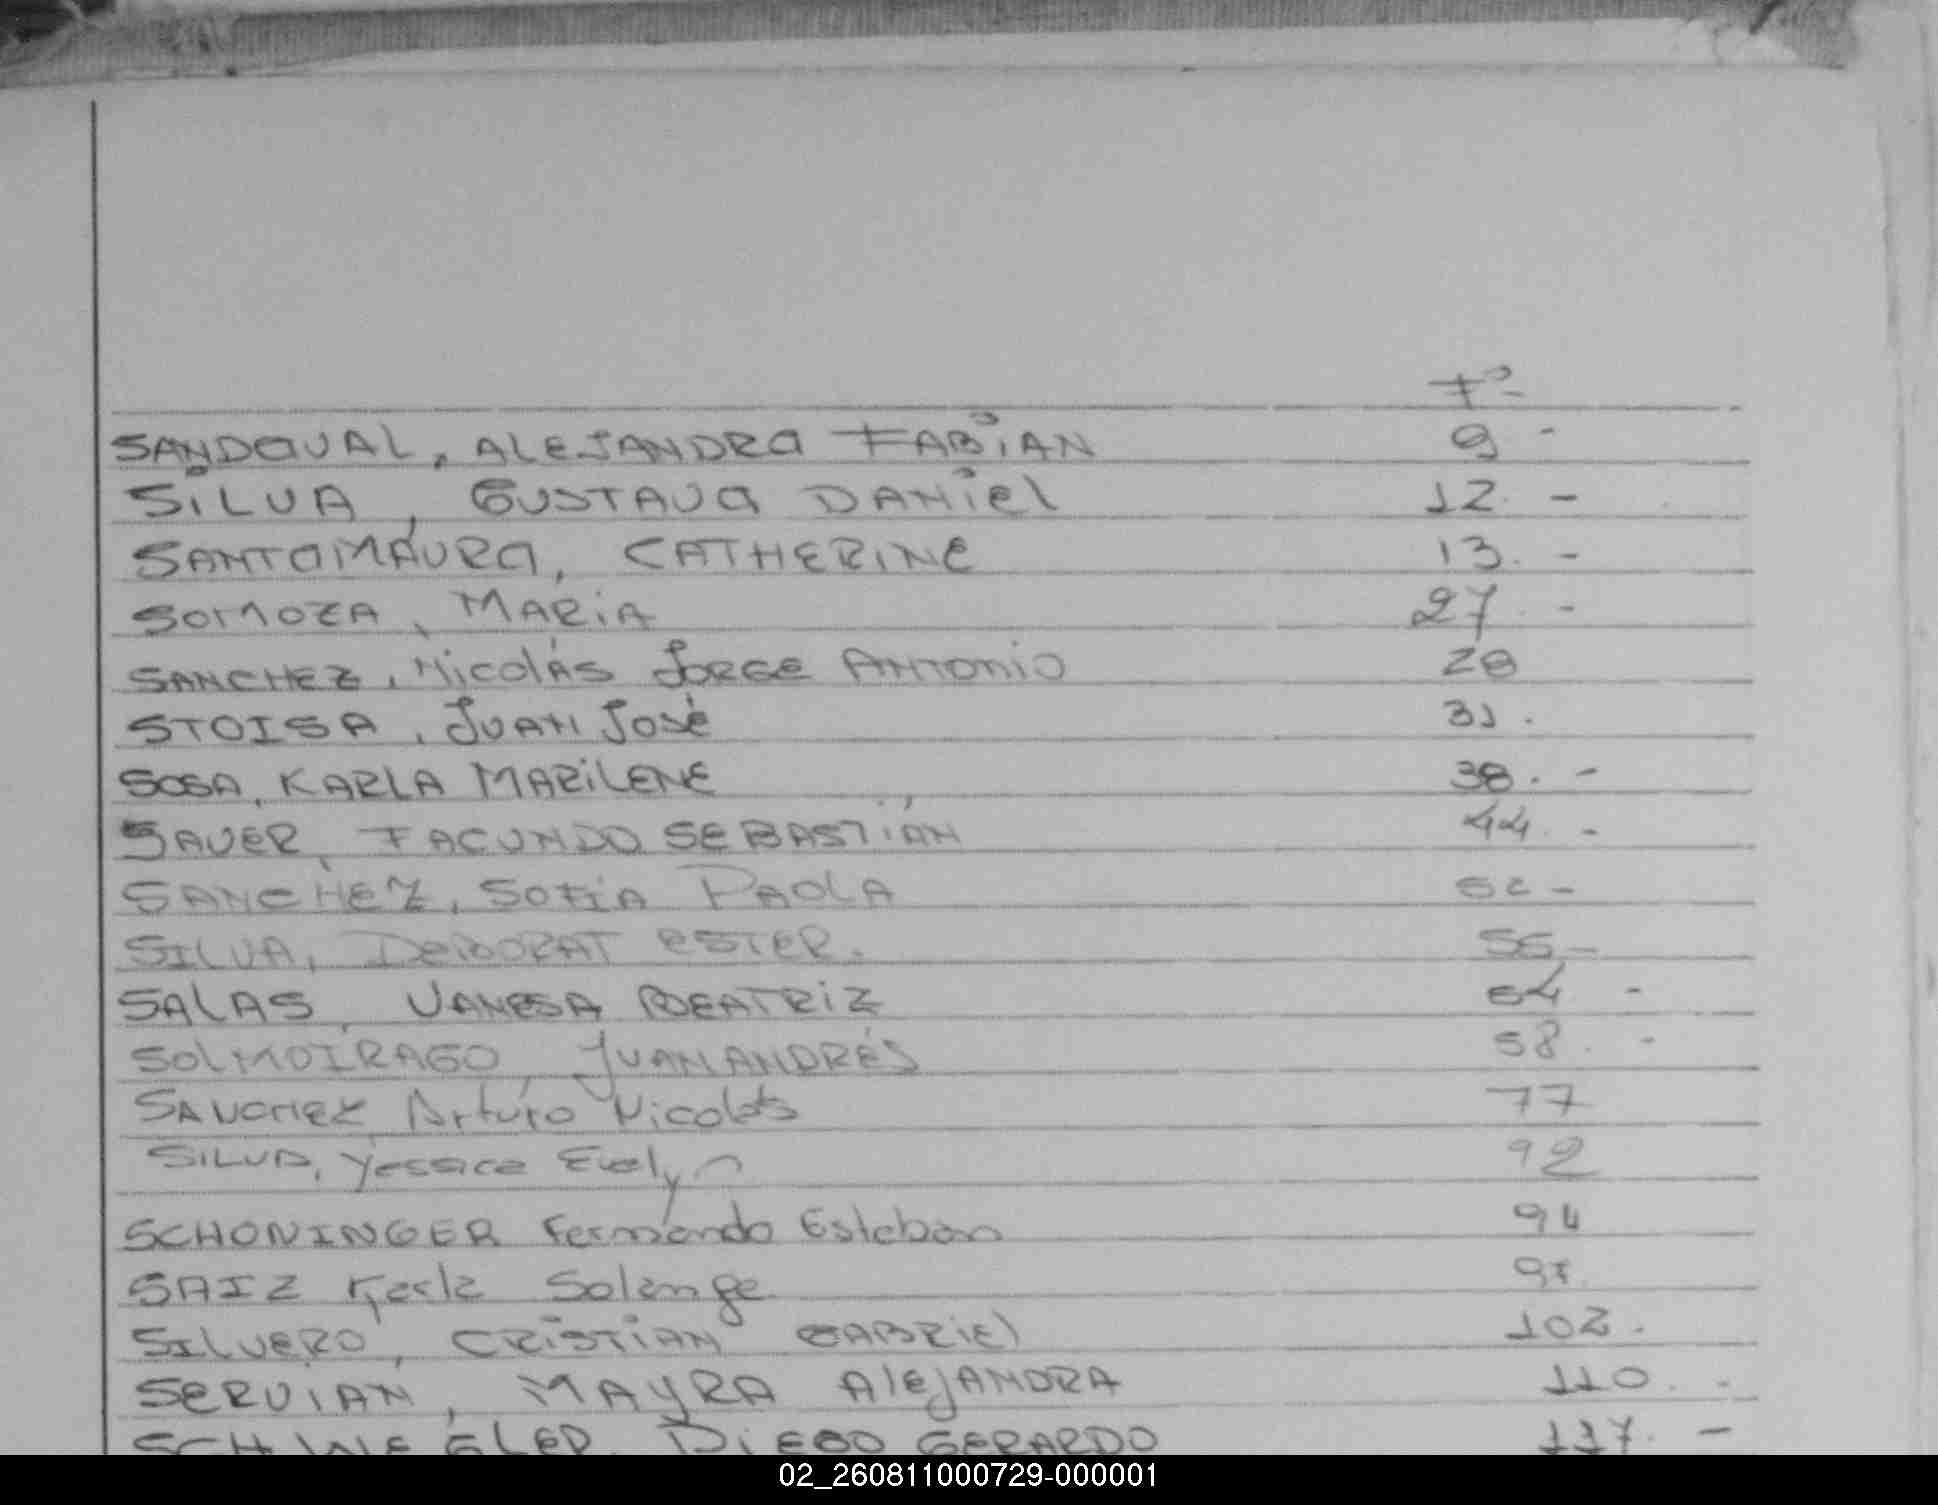 Fº-
SANDOVAL, ALEJANDRO FABIAN 9 -
SILVA, GUSTAVO DANIEL 12. -
SANTOMAURO, CATHERINE 13. -
SOMOZA, MARIA 27. -
SANCHEZ, Nicolás JORGE ANTONIO 28
STOISA, JUAN JOSÉ 31.
SOSA, KARLA MARILENE 38. -
SAUER, FACUNDO SEBASTIÁN 44. -
SANCHEZ, SOFIA PAOLA 52 -
SILVA, DEBORAT ESTER. -
SALAS, VANESA BEATRIZ 64 -
SOLMOIRAGO, JUAN ANDRÉS 58. -
SANCHEZ Arturo Nicolás 77
SILVA, Yessica Evelyn 92
SCHONINGER Fernando Esteban 94
SAIZ Karla Solange
SILVERO, CRISTIAN GABRIEL 102.
SERVIAN, MAYRA ALEJANDRA 110. -
DIEGO GERARDO 117. -
02_260811000729-000001